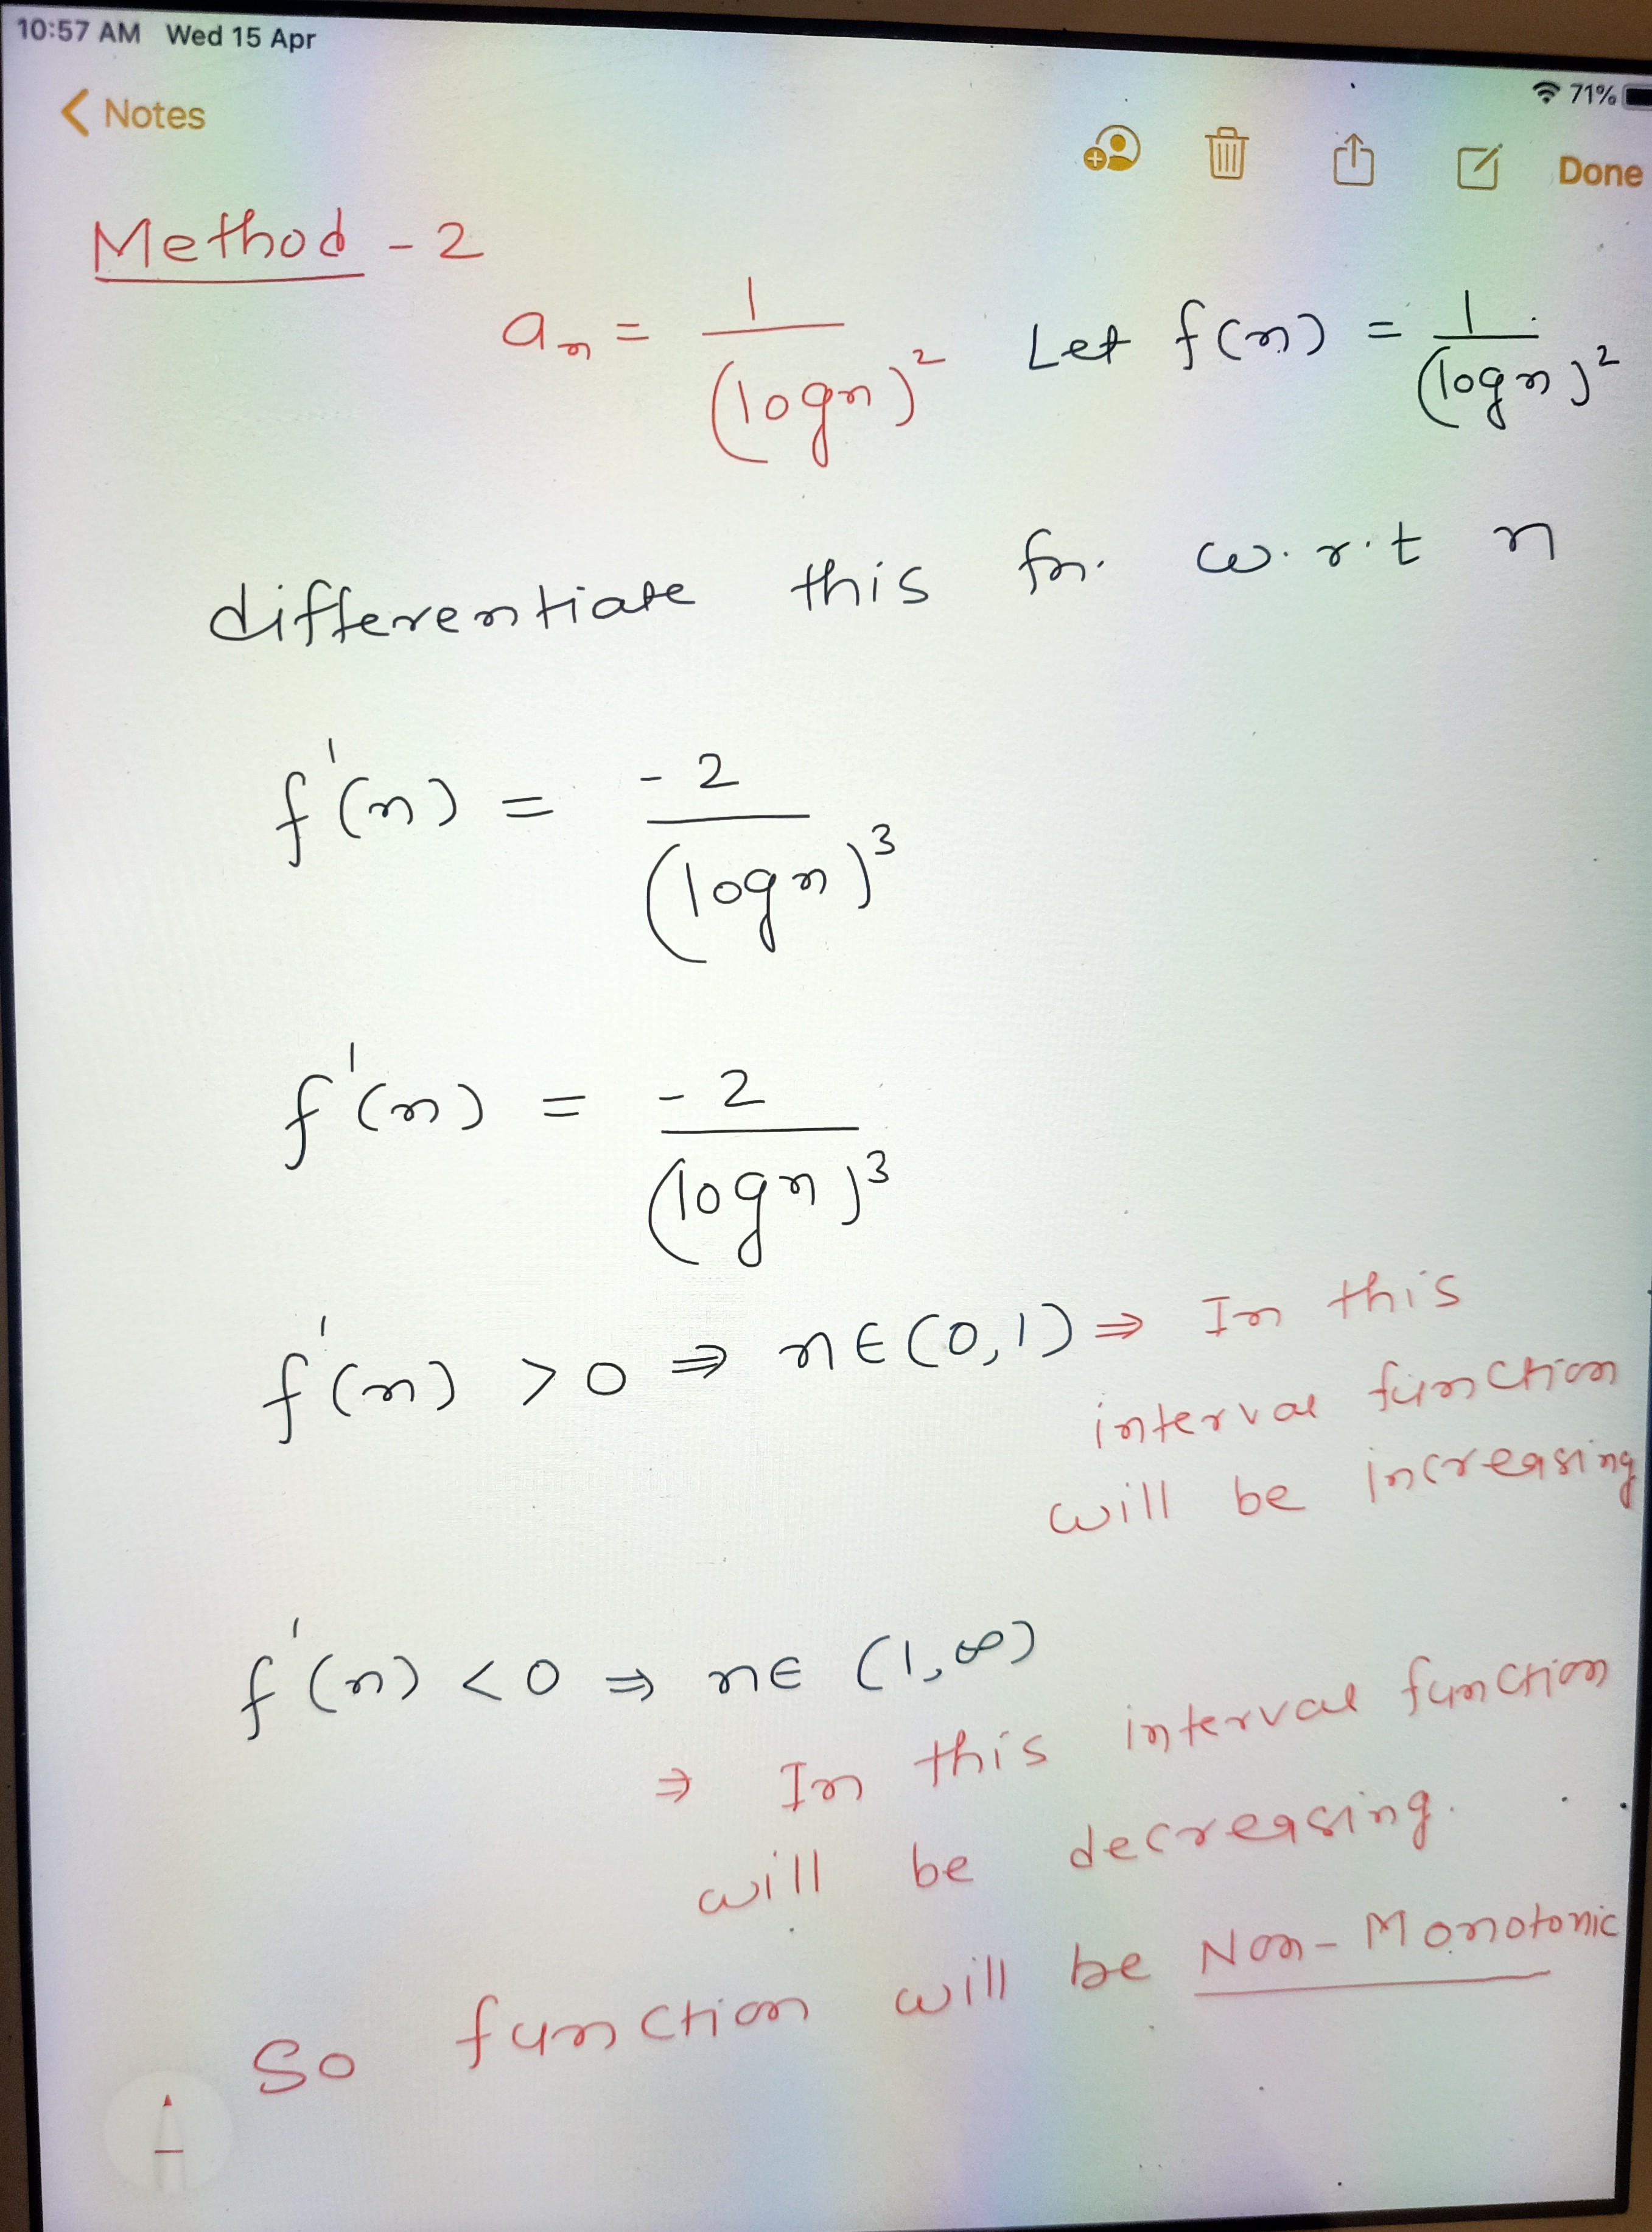 10:57 AM Wed 15 Apr
71%
Notes
Done
Method - 2
aₙ = 1/(log n)² Let f(n) = 1/(log n)²
differentiate this fn. w.r.t n
f'(n) = -2/(log n)³
f'(n) = -2/(log n)³
f'(n) > 0 ⇒ n∈(0,1) ⇒ In this
interval function
will be increasing
f'(n) < 0 ⇒ n∈ (1,∞)
⇒ In this interval function
will be decreasing.
So function will be Non-Monotonic